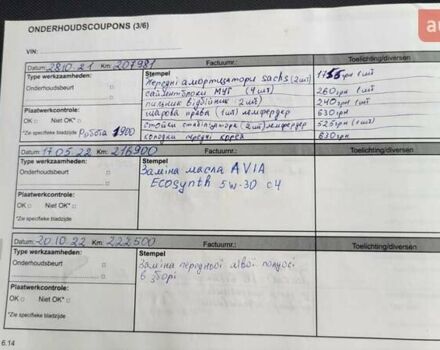 ONDERHOUDSCOUPONS (3/6)
VIN:
Datum: 28.10.21 Km: 207981 Factuurnr.: Toelichting/diversen
Type werkzaamheden: Stempel
передні амортизатори sachs (2шт) 1155грн 1шт
Onderhoudsbeurt
сайлентблоки МУГ (4шт) 260грн 1шт
пильник відбійник 2шт 240грн 1шт
Plaatwerkcontrole:
шарова права (1шт) лемфердер 630грн
OK Niet OK*
стойки стабілізатора (2шт) лемфердер 525грн (1шт)
*Zie specifieke bladzijde Робота 1900
колодки передні 630грн
Datum: 17.05.22 Km: 216900 Factuurnr.: Toelichting/diversen
Type werkzaamheden: Stempel
Onderhoudsbeurt
Заміна масла AVIA
Ecosynth 5w-30 c4
Plaatwerkcontrole:
OK Niet OK*
*Zie specifieke bladzijde
Datum: 20.10.22 Km: 222500 Factuurnr.: Toelichting/diversen
Type werkzaamheden: Stempel
Onderhoudsbeurt
Заміна передньої лівої полуосі
в зборі
Plaatwerkcontrole:
OK Niet OK*
*Zie specifieke bladzijde
6.14